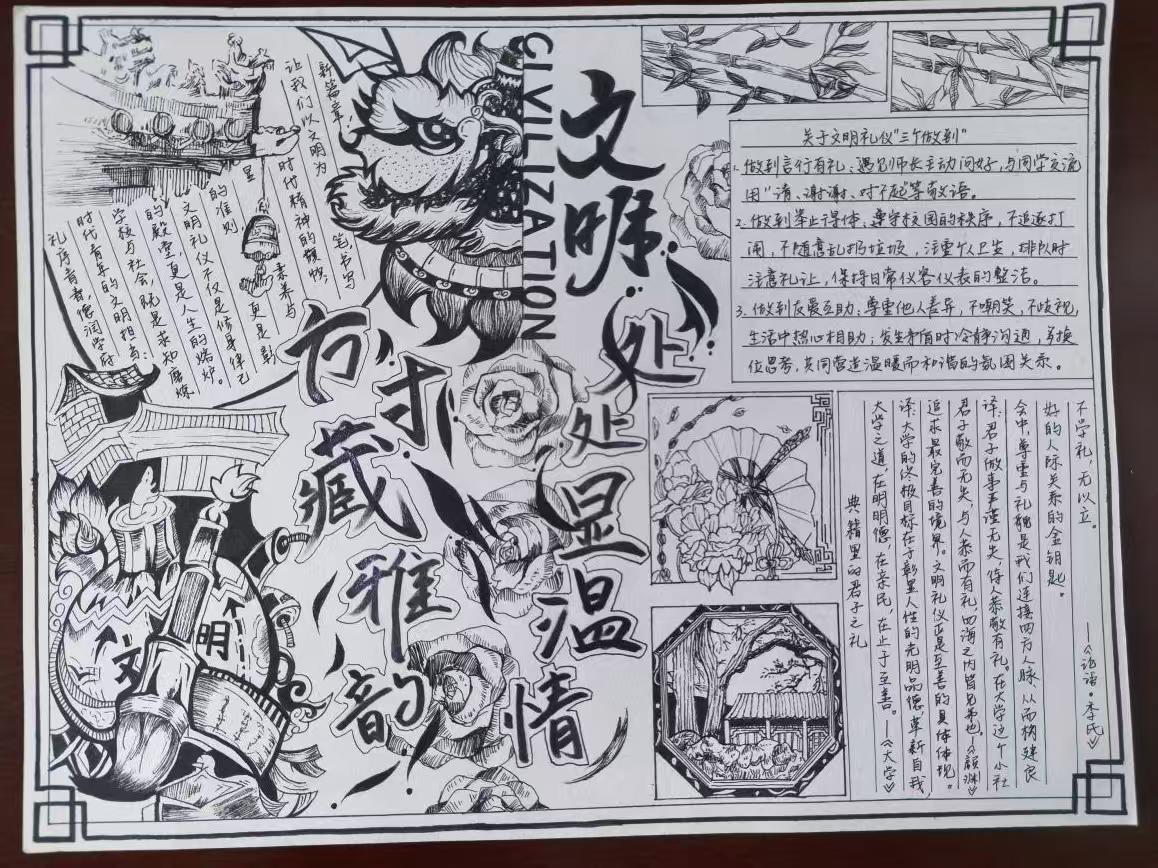 文明处处显温情
方寸藏雅韵
CIVILIZATION
礼序青衿,德润学府
时代青年的文明担当:
学校与社会,既是求知磨炼
的殿堂,更是人生的熔炉。
文明礼仪不仅是修身律己
的准则 更是彰
显 素养与
时代精神的旗帜,
让我们以文明为 笔,书写
新篇章!
文明
关于文明礼仪"三个做到"
1.做到言行有礼:遇见师长主动问好,与同学交流
用"请、谢谢、对不起等敬语。
2.做到举止得体:遵守校园的秩序,不追逐打
闹,不随意乱扔垃圾,注重个人卫生,排队时
注意礼让,保持日常仪容仪表的整洁。
3.做到友爱互助:尊重他人差异,不嘲笑,不歧视,
生活中热心相助;发生矛盾时冷静沟通,多换
位思考,共同营造温暖而和谐的氛围关系。
典籍里的君子之礼
大学之道,在明明德,在亲民,在止于至善。——《大学》
译:大学的终极目标在于彰显人性的光明品德,革新自我,
追求最完善的境界。文明礼仪正是至善的具体体现。
君子敬而无失,与人恭而有礼,四海之内皆兄弟也。《颜渊》
译:君子做事严谨无失,待人恭敬有礼。在大学这个小社
会中,尊重与礼貌是我们连接四方人脉从而构建良
好的人际关系的金钥匙。
不学礼,无以立。 ——《论语·季氏》